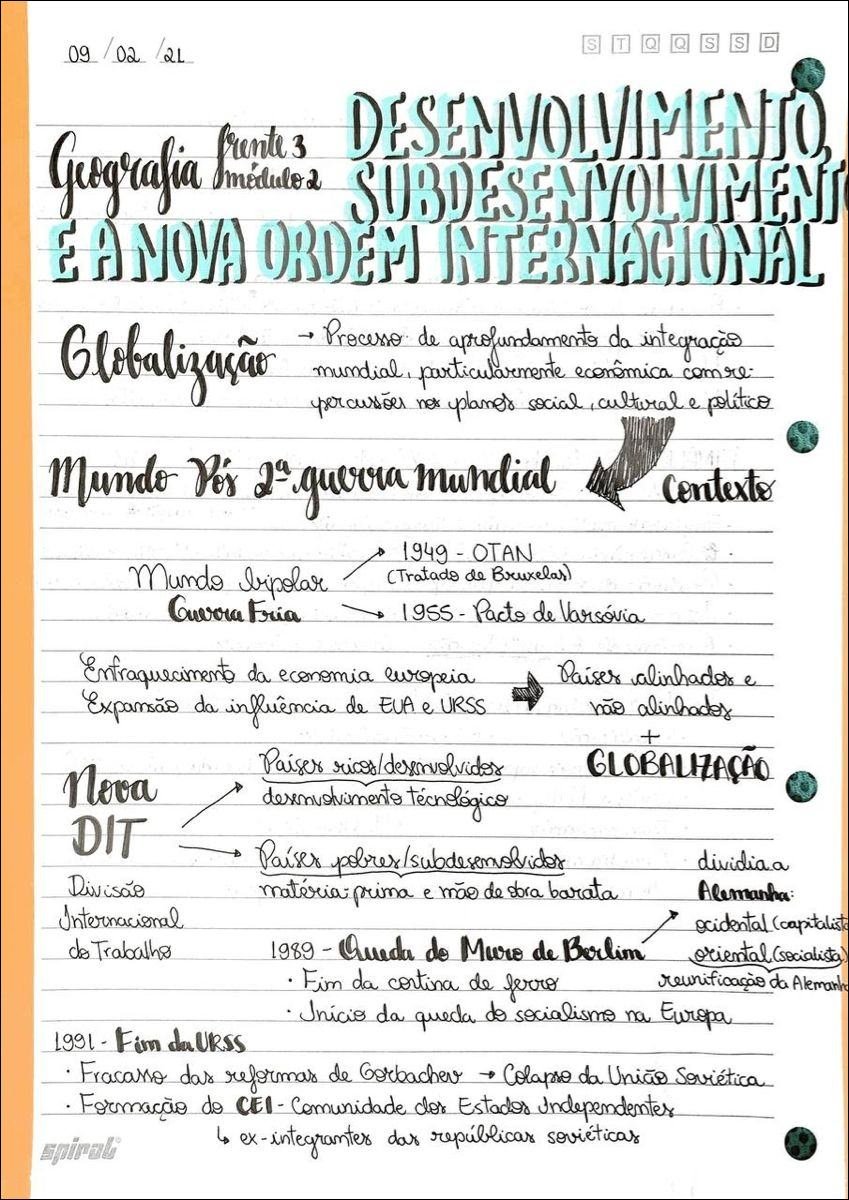 09 / 02 / 21
S T Q Q S S D
Geografia frente 3
módulo 2
DESENVOLVIMENTO,
SUBDESENVOLVIMENTO
E A NOVA ORDEM INTERNACIONAL
Globalização
→ Processo de aprofundamento da integração
mundial, particularmente econômica com re-
percussões nos planos social, cultural e político
Mundo Pós 2ª guerra mundial
Contexto
Mundo bipolar
Guerra Fria
1949 - OTAN
(Tratado de Bruxelas)
1955 - Pacto de Varsóvia
Enfraquecimento da economia europeia
Expansão da influência de EUA e URSS
Países alinhados e
não alinhados
+
GLOBALIZAÇÃO
Nova
DIT
Divisão
Internacional
do Trabalho
Países ricos/desenvolvidos
desenvolvimento técnológico
Países pobres/subdesenvolvidos
matéria-prima e mão de obra barata
1989 - Queda do Muro de Berlim
dividia a
Alemanha:
ocidental (capitalista
oriental (socialista)
reunificação da Alemanh
· Fim da cortina de ferro
· Início da queda do socialismo na Europa
1991 - Fim da URSS
· Fracasso das reformas de Gorbachev → Colapso da União Soviética
· Formação do CEI - Comunidade dos Estados Independentes
↳ ex-integrantes das repúblicas soviéticas
spiral